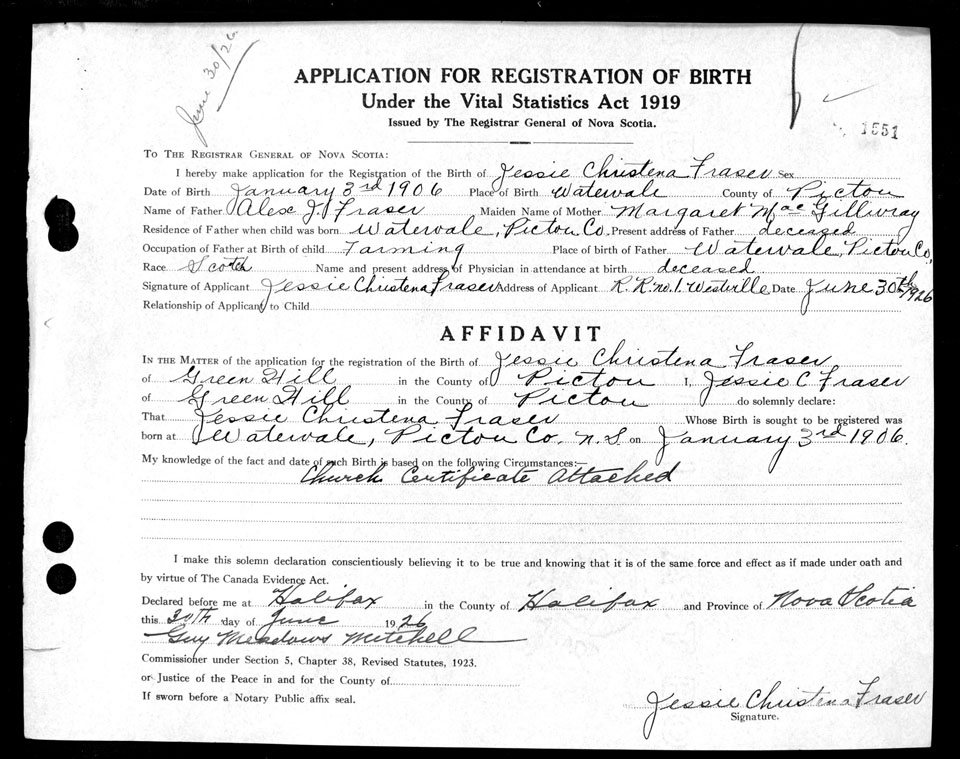 June 30/26
APPLICATION FOR REGISTRATION OF BIRTH
Under the Vital Statistics Act 1919
Issued by The Registrar General of Nova Scotia.
1551
TO THE REGISTRAR GENERAL OF NOVA SCOTIA:
I hereby make application for the Registration of the Birth of Jessie Christena Fraser Sex
Date of Birth January 3rd 1906 Place of Birth Watervale County of Pictou
Name of Father Alex J. Fraser Maiden Name of Mother Margaret MacGillivray
Residence of Father when child was born Watervale, Pictou Co. Present address of Father deceased
Occupation of Father at Birth of child Farming Place of birth of Father Watervale, Pictou Co,
Race Scotch Name and present address of Physician in attendance at birth deceased
Signature of Applicant Jessie Christena Fraser Address of Applicant R.R. no. 1. Westville Date June 30th 1926
Relationship of Applicant to Child
AFFIDAVIT
IN THE MATTER of the application for the registration of the Birth of Jessie Christena Fraser
of Green Hill in the County of Pictou I, Jessie C Fraser
of Green Hill in the County of Pictou do solemnly declare:
That Jessie Christena Fraser Whose Birth is sought to be registered was
born at Watervale, Pictou Co. N.S on January 3rd 1906.
My knowledge of the fact and date of such Birth is based on the following Circumstances:—
Church Certificate Attached
I make this solemn declaration conscientiously believing it to be true and knowing that it is of the same force and effect as if made under oath and
by virtue of The Canada Evidence Act.
Declared before me at Halifax in the County of Halifax and Province of Nova Scotia
this 30TH day of June 1926
Guy Meadows Mitchell
Commissioner under Section 5, Chapter 38, Revised Statutes, 1923.
or Justice of the Peace in and for the County of
If sworn before a Notary Public affix seal.
Jessie Christena Fraser
Signature.